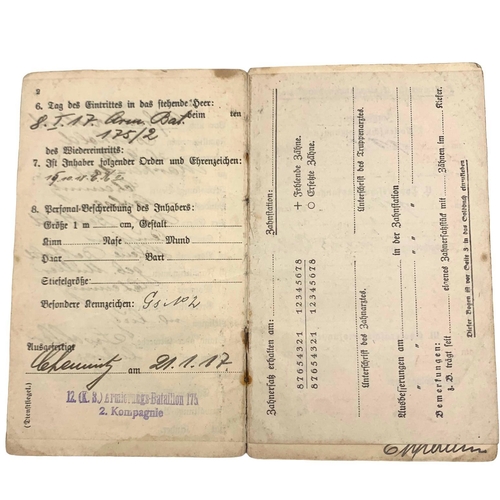 2
6. Tag des Eintrittes in das stehende Heer:
8. I. 17. Arm. Bat. beim ten
175/2
des Wiedereintritts:
7. Ist Inhaber folgender Orden und Ehrenzeichen:
8. Personal-Beschreibung des Inhabers:
Größe 1 m cm, Gestalt
Kinn Nase Mund
Haar Bart
Stiefelgröße:
Besondere Kennzeichen: Gs No 2
Ausgefertigt
Chemnitz am 21.1.17.
(Dienstsiegel.)
12. (K. B.) Armierungs-Bataillon 175
2. Kompagnie
Zahnersatz erhalten am: Zahnstation:
87654321 12345678 + Fehlende Zähne.
87654321 12345678 ○ Ersetzte Zähne.
Unterschrift des Zahnarztes. Unterschrift des Truppenarztes.
Ausbesserungen am in der Zahnstation
" " " "
" " " "
Bemerkungen:
z. B. trägt seit ebenes Zahnersatzstück mit Zähnen im Kiefer.
Dieser Bogen ist vor Seite 3 in das Soldbuch einzukleben